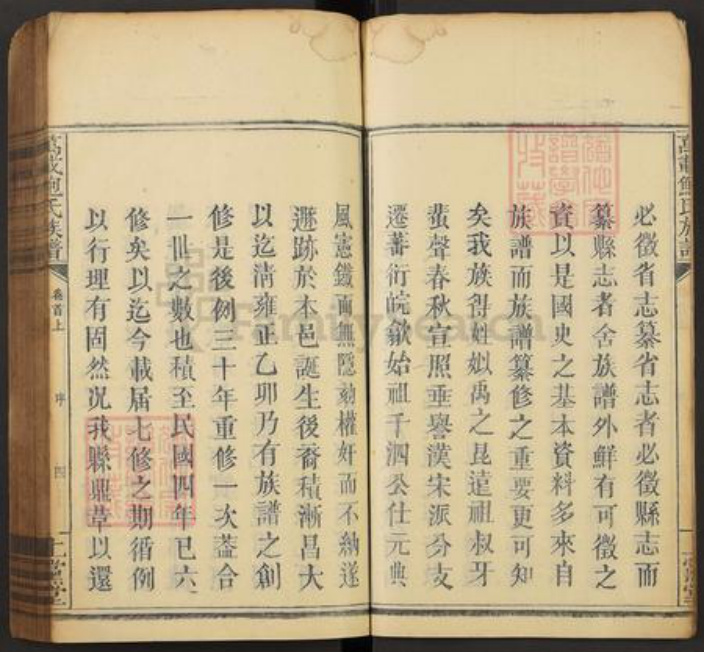 必徵省志纂省志者必徵縣志而
纂縣志者舍族譜外鮮有可徵之
資以是國史之基本資料多來自
族譜而族譜纂修之重要更可知
矣我族得姓姒禹之昆遠祖叔牙
蜚聲春秋宣照垂譽漢宋派分支
遷蕃衍皖歙始祖千泗公仕元典
風憲鐵面無隱劾權奸而不納遂
遯跡於本邑誕生後裔積漸昌大
以迄清雍正乙卯乃有族譜之創
修是後例三十年重修一次葢合
一世之數也積至民國四年已六
修矣以迄今載屆七修之期循例
以行理有固然况我縣鼎革以還
萬載鮑氏族譜
卷首上
序
四
FamilySearch